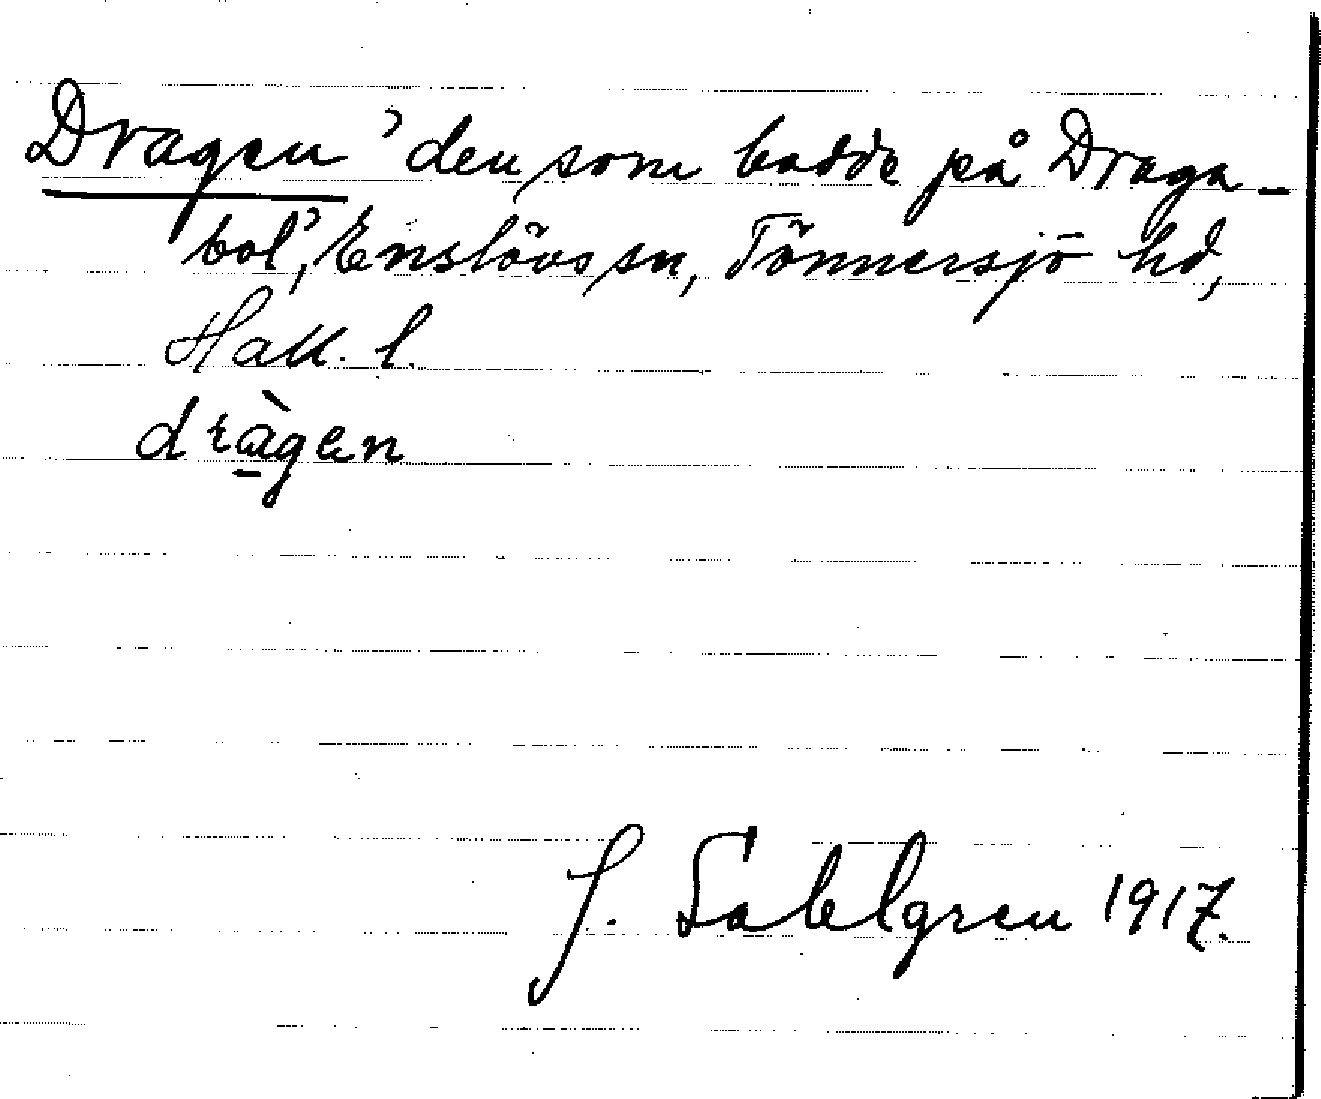 Dragen 'den som bodde på Draga-
bol', Enslövs sn, Tönnersjö hd,
Hall. l.
dràgen
J. Sahlgren 1917.